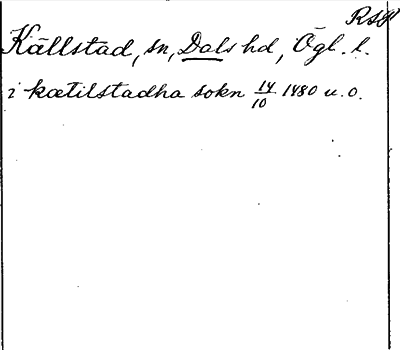 RSW
Källstad, sn, Dals hd, Ögl. l.
i kætilstadha sokn 14/10 1480 u. o.